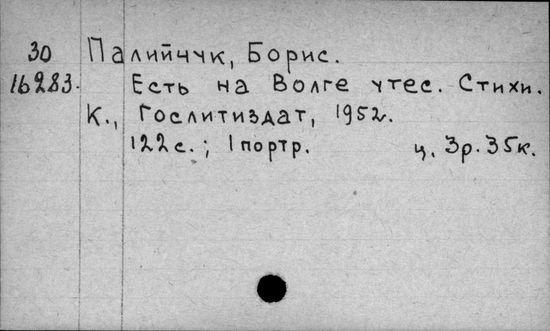 30 Палийчук, Борис.
16283. Есть на Волге утес. Стихи.
К., Гослитиздат, 1952.
122с.; 1портр. ц. 3р.35к.